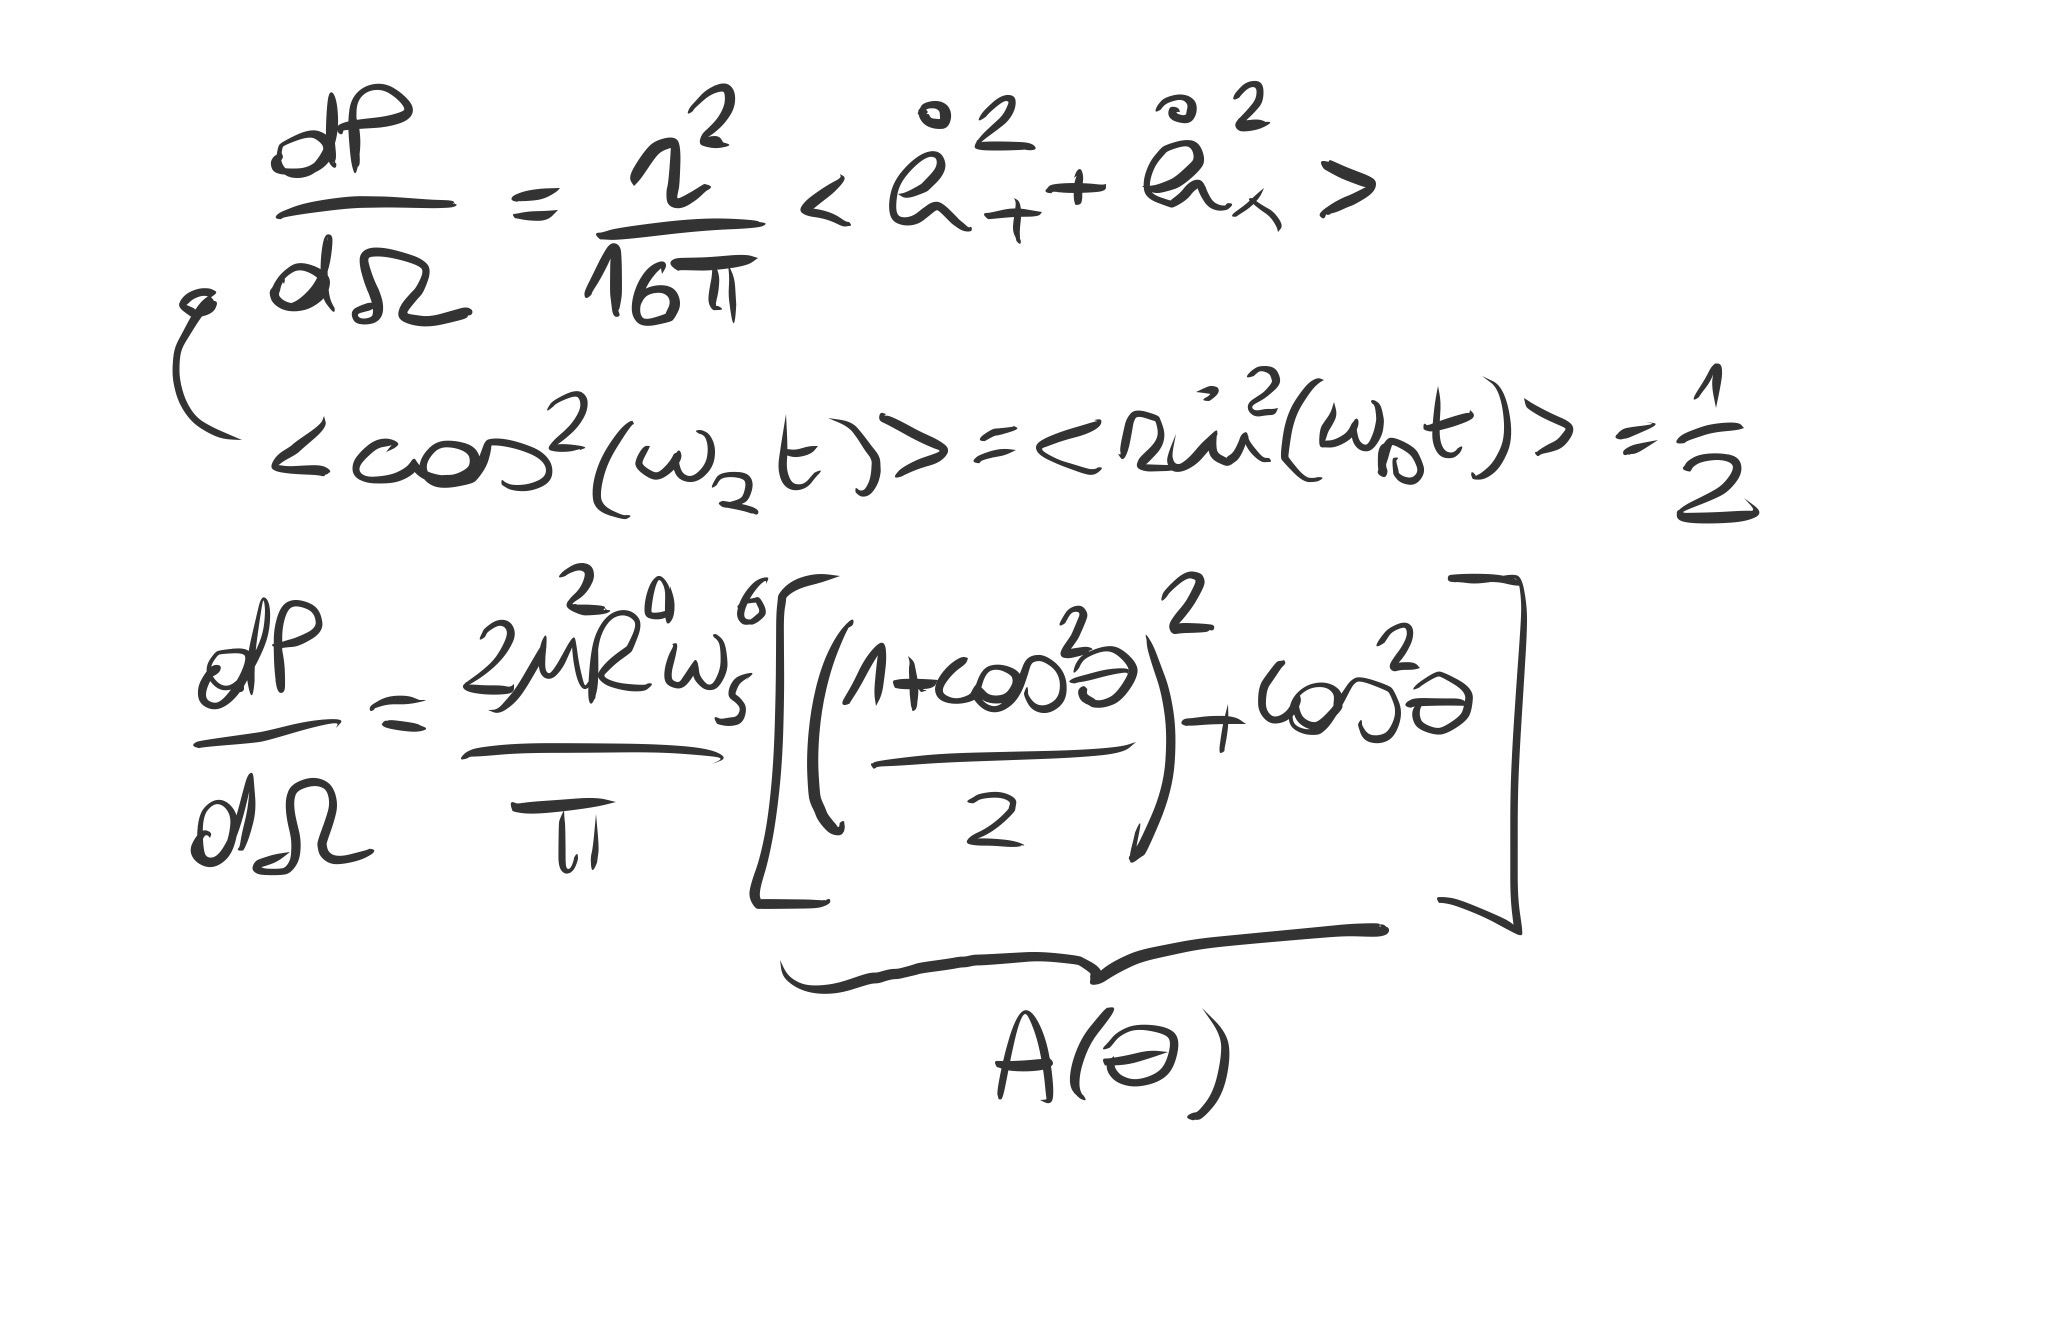 dP/dΩ = r²/16π < ḣ₊² + ḣₓ² >
< cos²(ω₂t) > = < sin²(ωₛt) > = 1/2
dP/dΩ = 2μ²R⁴ωₛ⁶/π [ ((1+cos²θ)/2)² + cos²θ ]
A(θ)